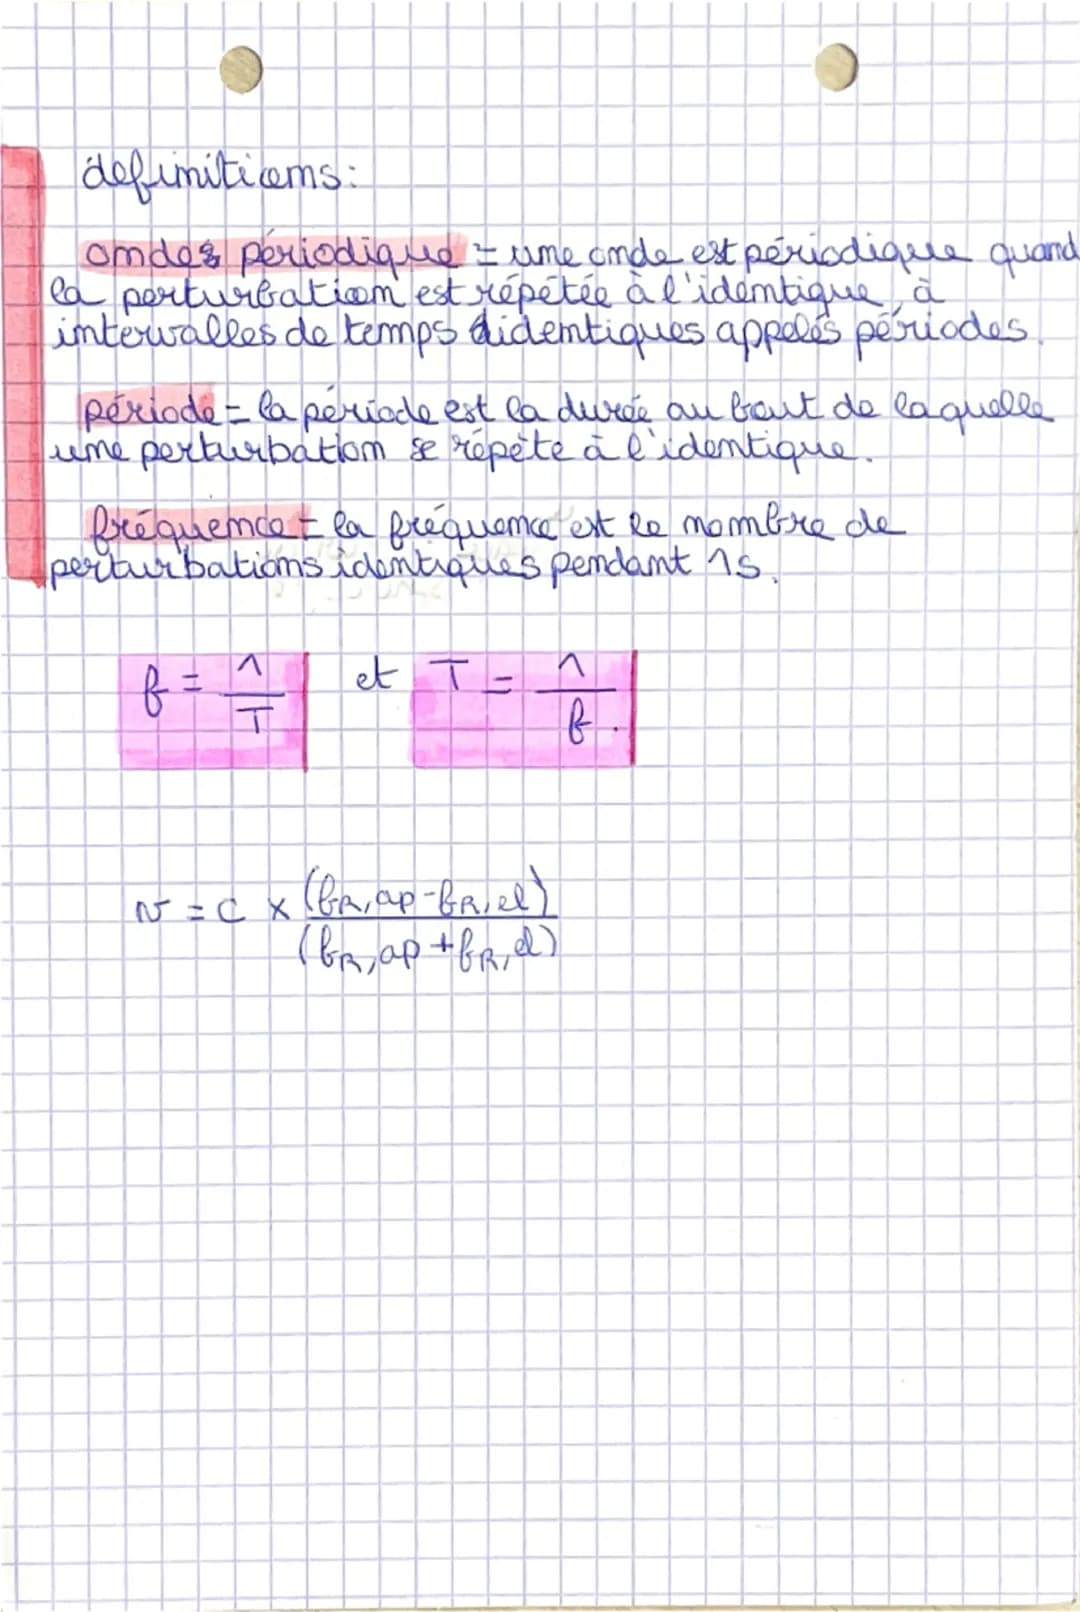 définitions:
ondes périodique = une onde est périodique quand
la perturbation est répétée à l'identique, à
intervalles de temps identiques appelés périodes.
période = la période est la durée au bout de laquelle
une perturbation se répète à l'identique.
fréquence = la fréquence est le nombre de
perturbations identiques pendant 1s.
f = 1/T et T = 1/f.
v = c × (fR,ap - fR,el)
(fR,ap + fR,el)